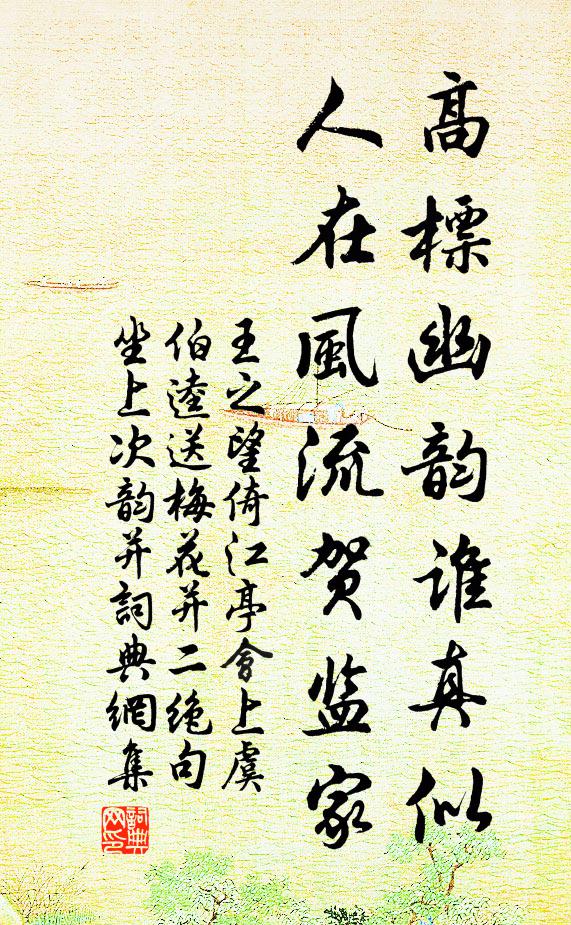 高標幽韵誰真似
人在風流贺监家
王之望倚江亭會上虞
伯逵送梅花并二絶句
坐上次韵并詞典網集
詞典网印